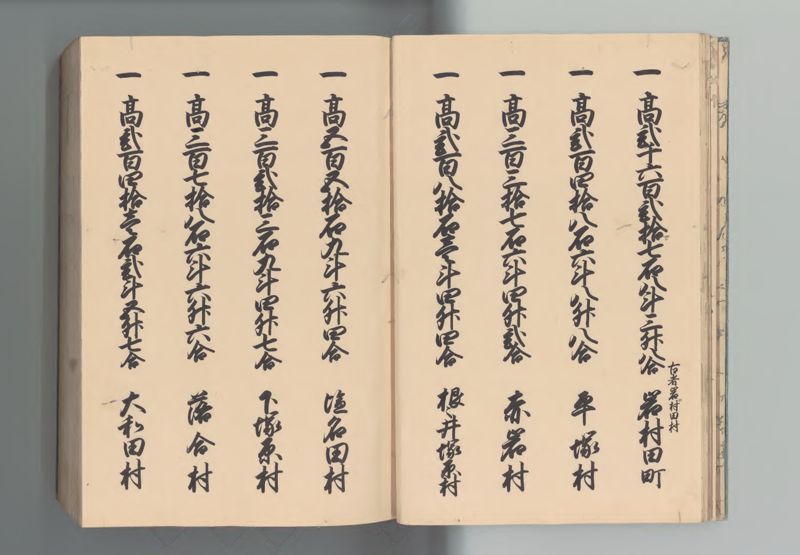 一 高弐千六百弐拾七石八斗三升八合 岩村田町
古者岩村田村
一 高弐百四拾八石六斗八升八合 平塚村
一 高三百三拾七石六斗四升弐合 赤岩村
一 高弐百八拾石壱斗四升四合 根井塚原村
一 高五百五拾石九斗六升四合 塩名田村
一 高三百弐拾三石九斗四升七合 下塚原村
一 高三百七拾八石六斗六升六合 落合村
一 高弐百四拾壱石弐斗五升七合 大和田村